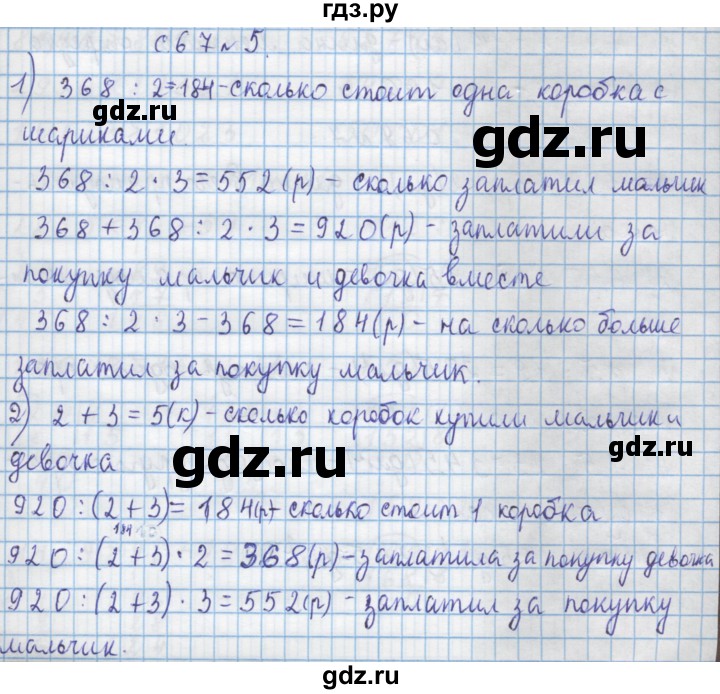 гдз.ру
с 67 № 5.
1) 368 : 2 = 184 - сколько стоит одна коробка с
шариками.
gdz.ru
gdz.ru
368 : 2 · 3 = 552 (р) - сколько заплатил мальчик
368 + 368 : 2 · 3 = 920 (р) - заплатили за
покупку мальчик и девочка вместе
368 : 2 · 3 - 368 = 184 (р) - на сколько больше
заплатил за покупку мальчик.
2) 2 + 3 = 5 (к) - сколько коробок купили мальчик и
девочка
gdz.ru
gdz.ru
920 : (2 + 3) = 184 (р) - сколько стоит 1 коробка
184
920 : (2 + 3) · 2 = 368 (р) - заплатила за покупку девочка
920 : (2 + 3) · 3 = 552 (р) - заплатил за покупку
мальчик.
gdz.ru